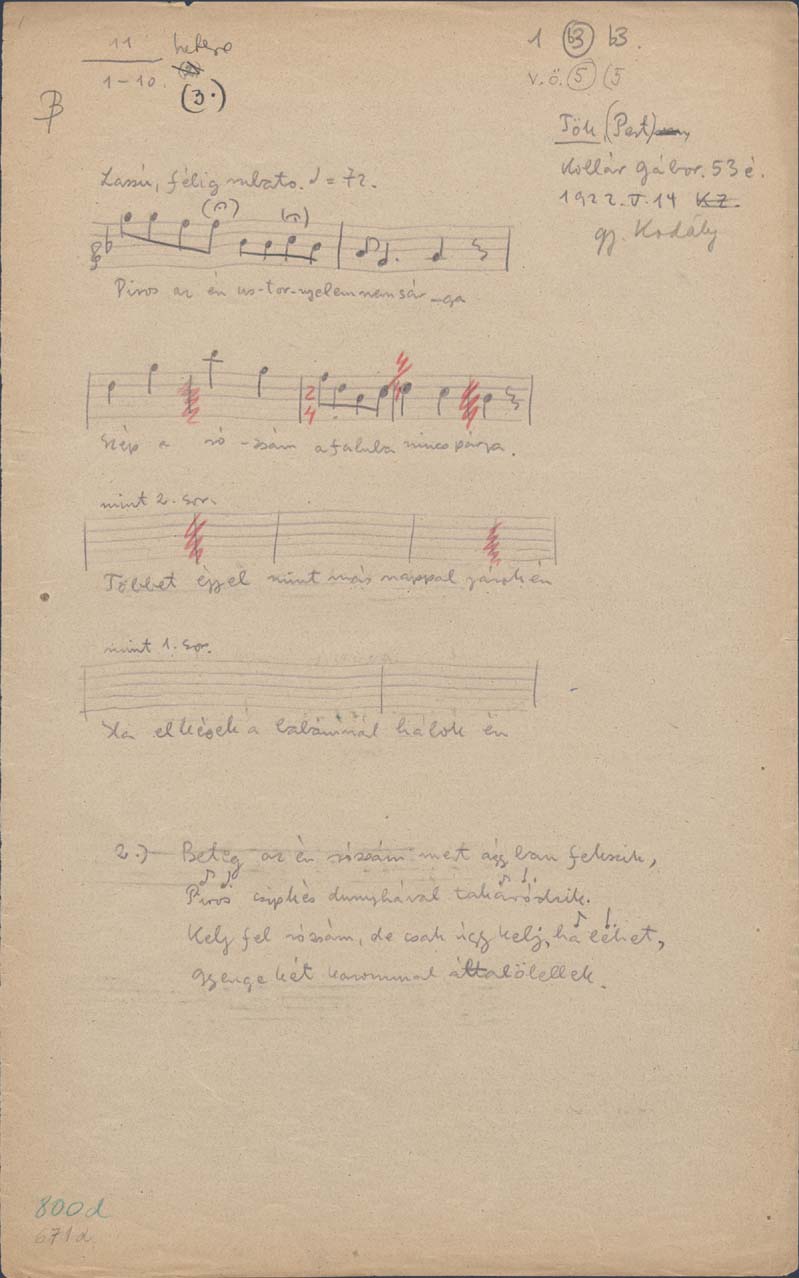 11 hetero
1 – 10.
(3.)
1 b3 b3.
v.ö. 5 (5
Tök (Pest)
Kollár Gábor. 53 é.
1922. V. 14 KZ.
gy. Kodály
Lassú, félig rubato. = 72.
Piros az én us-tor-nyelem nem sár-ga
2
4
4
4
Szép a ró-zsám a faluba nincs párja.
mint 2. sor.
Többet éjjel mint más nappal járok én
mint 1. sor.
Ha elkések a babámnál hálok én
2.) Beteg az én rózsám mert ágyban fekszik,
Piros csipkés dunyhával takaródzik.
Kelj fel rózsám, de csak úgy kelj, ha lehet,
Gyenge két karommal általölellek.
800d
671d